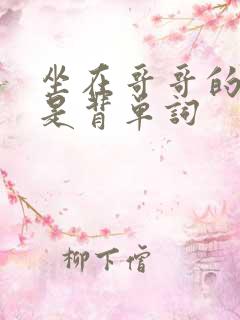 坐在哥哥的
是背單詞
柳下僧